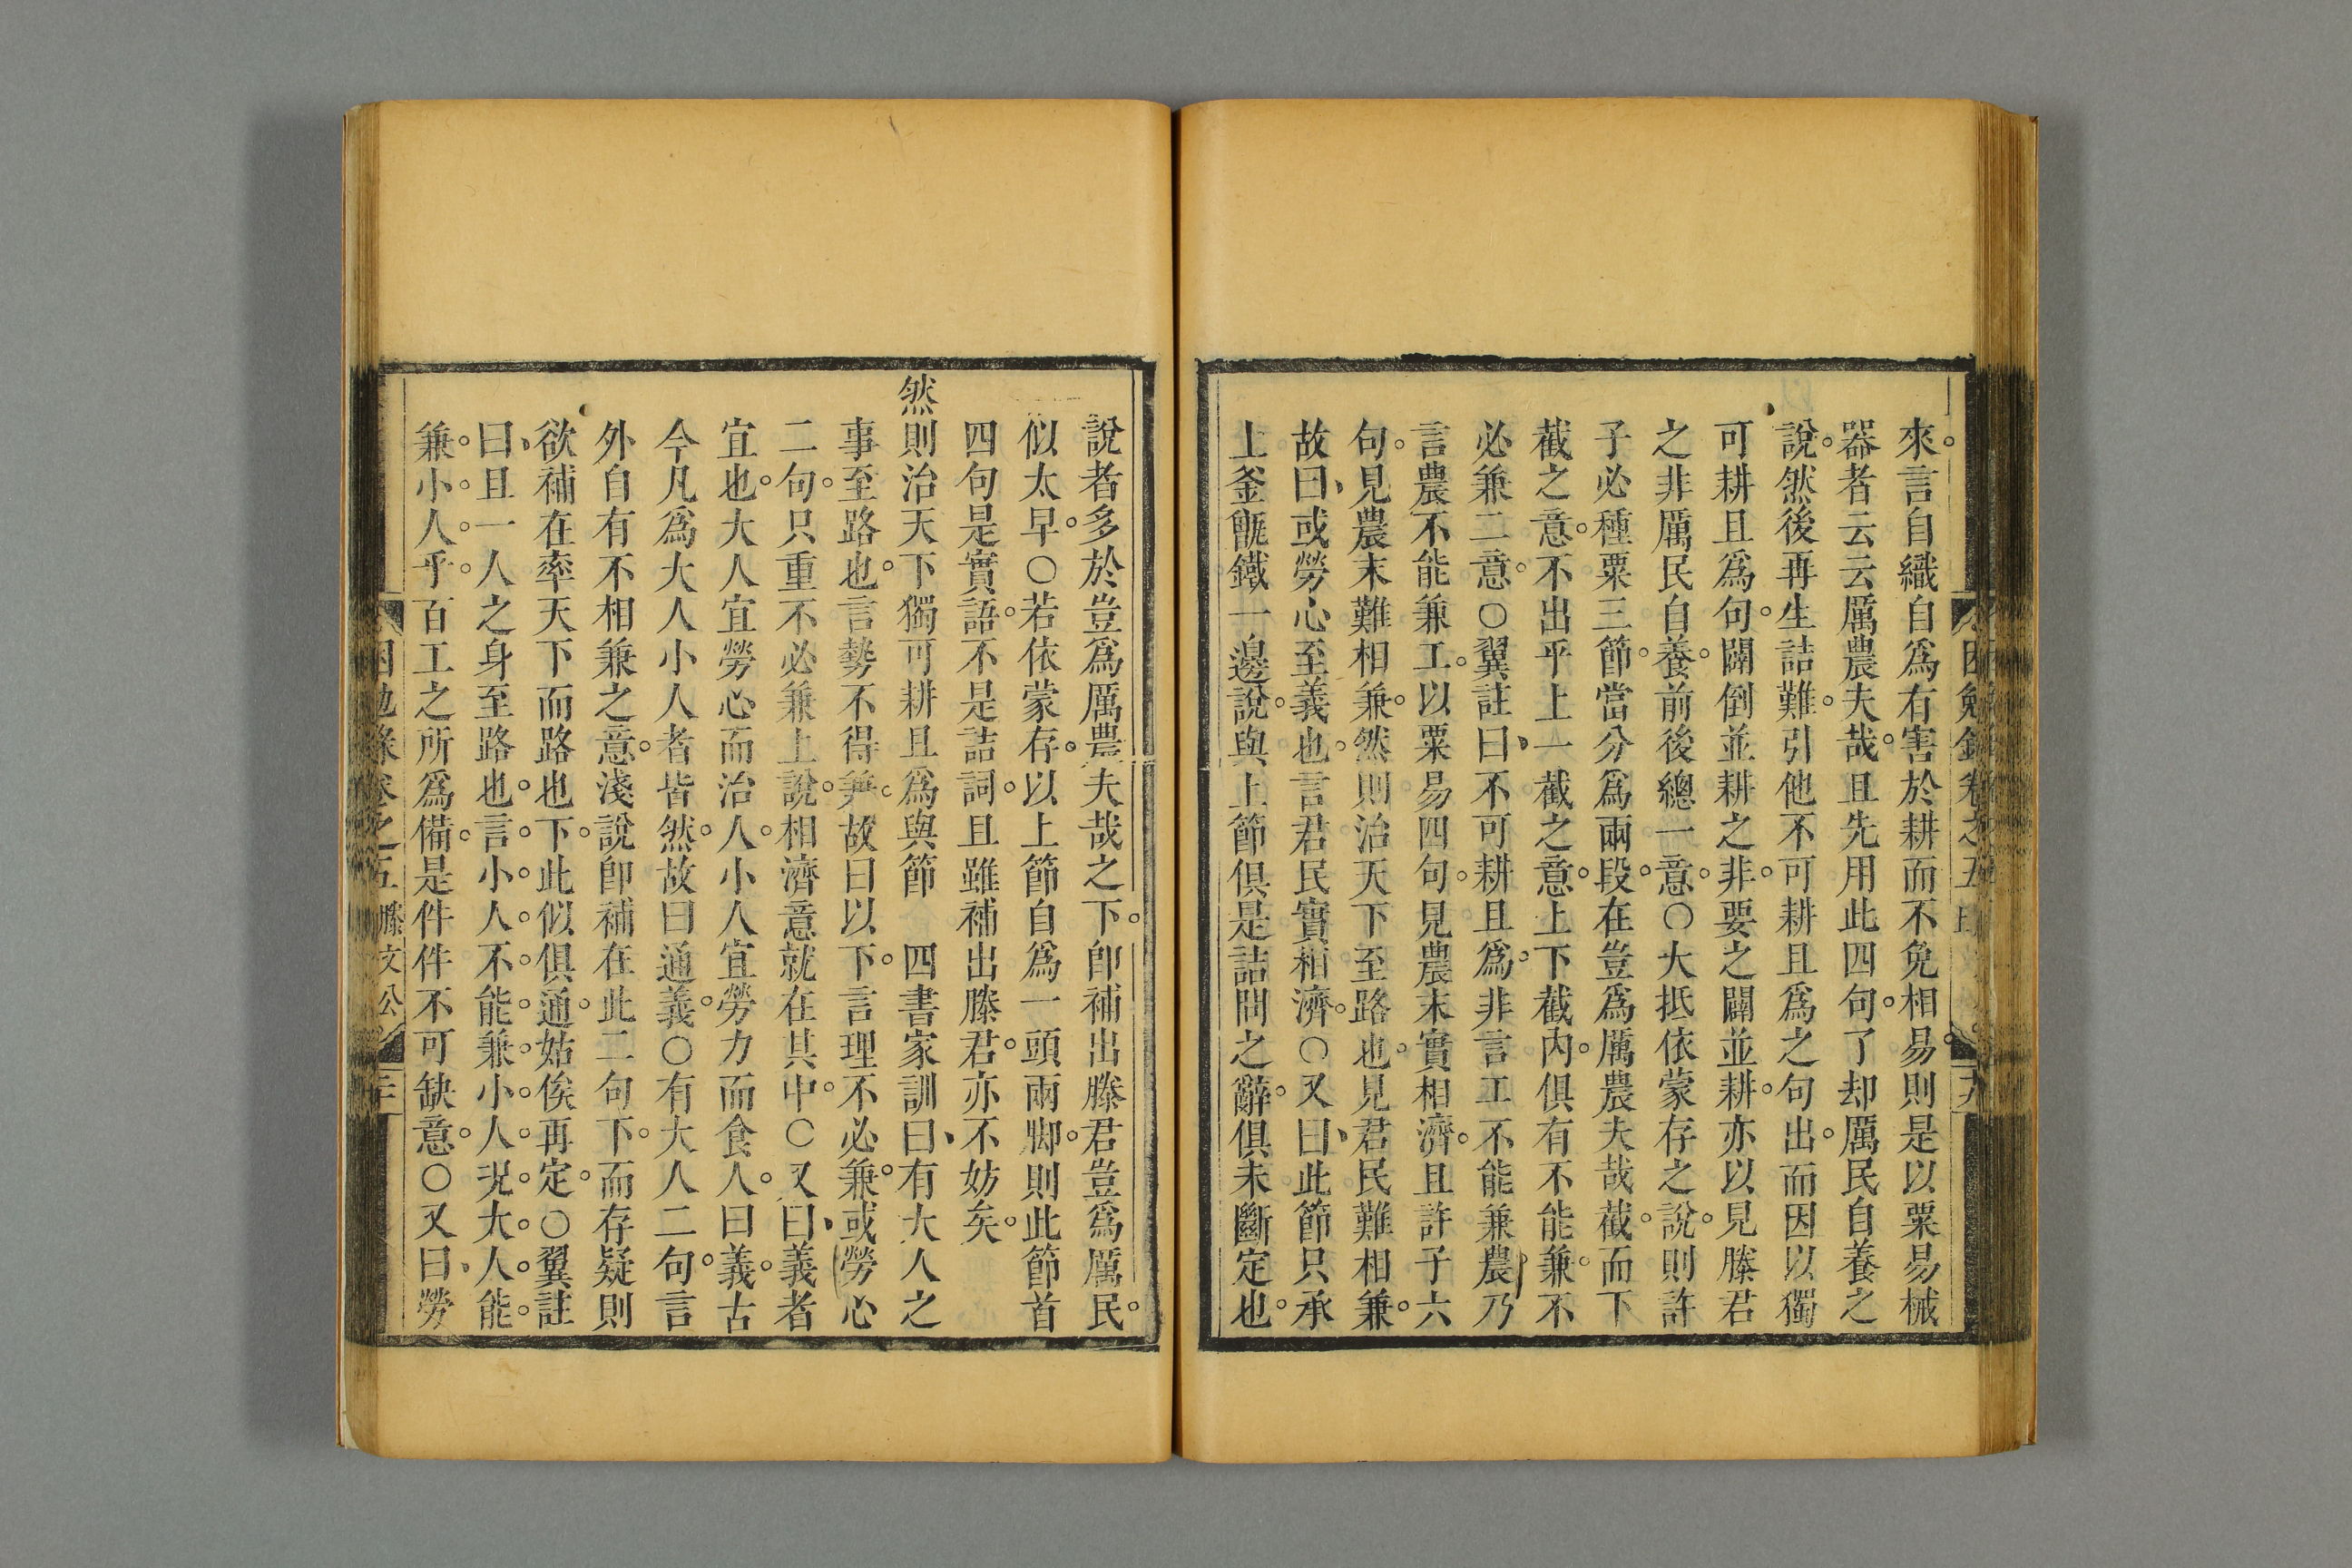 來。言自織自爲有害於耕而不免相易。則是以粟易械
器者云云厲農夫哉。且先用此四句。了却厲民自養之
說。然後再生詰難。引他不可耕且爲之句出。而因以獨
可耕且爲句。闢倒並耕之非。要之闢並耕。亦以見滕君
之非厲民自養。前後總一意。○大抵依蒙存之說。則許
子必種粟三節。當分爲兩段。在豈爲厲農夫哉截。而下
截之意。不出乎上一截之意。上下截內。俱有不能兼。不
必兼二意。○翼註曰、不可耕且爲。非言工不能兼農、乃
言農不能兼工。以粟易四句。見農末實相濟。且許子六
句。見農末難相兼。然則治天下至路也。見君民難相兼。
故曰、或勞心至義也。言君民實相濟。○又曰、此節只承
上釜甑鐵一邊說。與上節俱是詰問之辭。俱未斷定也。
說者多於豈爲厲農夫哉之下。卽補出滕君豈爲厲民。
似太早。○若依蒙存。以上節自爲一頭兩脚。則此節首
四句是實語。不是詰詞。且雖補出滕君。亦不妨矣。
然則治天下獨可耕且爲與節 四書家訓曰、有大人之
事至路也。言勢不得兼。故曰以下。言理不必兼。或勞心
二句。只重不必兼上說。相濟意就在其中。○又曰、義者
宜也。大人宜勞心而治人。小人宜勞力而食人。曰義。古
今凡爲大人小人者皆然。故曰通義。○有大人二句。言
外自有不相兼之意。淺說卽補在此二句下。而存疑則
欲補在率天下而路也下。此似俱通。姑俟再定。○翼註
曰、且一人之身至路也。言。小。人。不。能。兼。小。人。況。大。人。能。
兼。小。人。乎。百工之所爲備。是件件不可缺意。○又曰、勞
困勉錄卷之五 滕文公